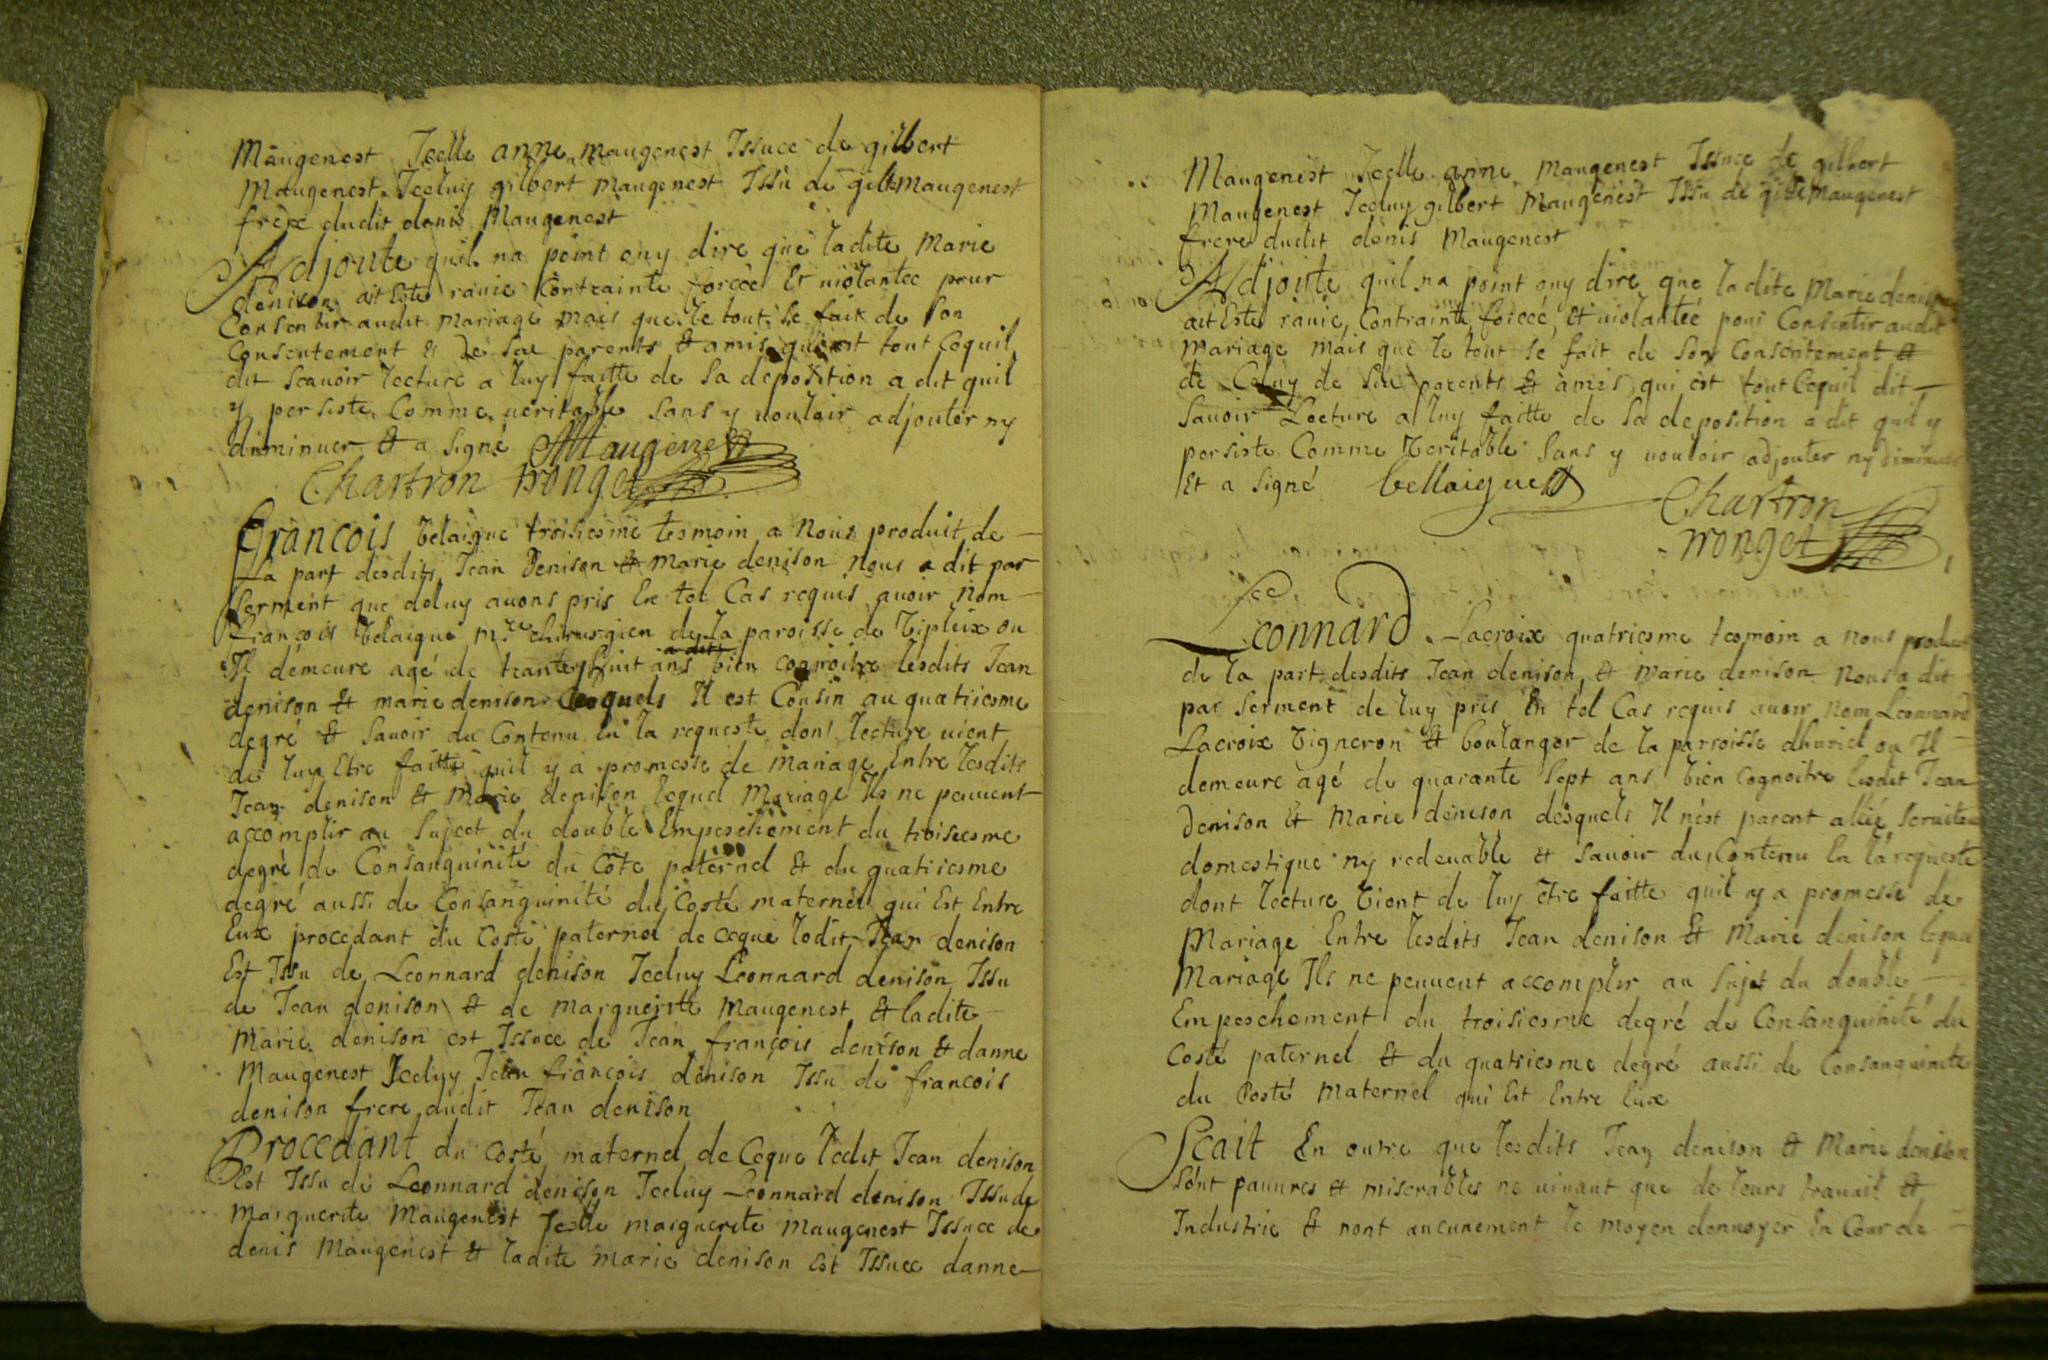 Maugenest Icelle anne maugenest Issuee de gilbert
Maugenest Iceluy gilbert maugenest Issu de gilbt maugenest
frere dudit denis Maugenest
Adjoute quil na point ouy dire que ladite Marie
denison ait Este ravie Contrainte forcée Et violantée pour
Consentir audit mariage mais que le tout se fait de son
Consentement & de ses parents & amis qui est tout Cequil
dit scauoir lecture a luy faitte de sa deposition a dit quil
y persiste Comme veritable sans y vouloir adjouter ny
diminuer & a signé Maugenest
Chartron ronget
François belaigue troisiesme tesmoin a Nous produit de
La part desdits Jean Denison & marie denison Nous a dit par
serment que deluy auons pris En tel Cas requis avoir Nom
François belaigue Mtre chirurgien de la paroisse de Tipleix ou
Il demeure agé de trante huit ans bien cognoitre lesdits Jean
denison & marie denison desquels Il est Cousin au quatriesme
degré & savoir du Contenu En la requeste dont lecture vient
de luy Etre faitte quil y a promesse de Mariage Entre lesdits
Jean denison & Marie denison lequel Mariage Ils ne peuvent
accomplir au sujeet du double Empeschement du troisiesme
degré de Consanguinité du Coté paternel & du quatriesme
degré aussi de Consanguinité du Costé maternel qui Est Entre
Eux procedant du Costé paternel de ceque ledit Jean denison
Est Issu de Leonnard denison Iceluy Leonnard denison Issu
de Jean denison & de marguerite Maugenest & ladite
Marie denison est Issuee de Jean françois denison & danne
Maugenest Iceluy Jean françois denison Issu de francois
denison frere dudit Jean denison
Procedant du costé maternel de Ceque ledit Jean denison
Est Issu de Leonnard denison Iceluy Leonnard denison Issu de
Marguerite Maugenest Icelle marguerite maugenest Issuee de
denis Maugenest & ladite marie denison Est Issuee danne
Maugenest Icelle anne Maugenest Issuee de gilbert
Maugenest Iceluy gilbert Maugenest Issu de gilbt Maugenest
frere dudit denis Maugenest
Adjoute quil na point ouy dire que ladite Marie denison
ait Este ravie, Contrainte, forcée, & violantée pour Consentir audit
Mariage mais que le tout se fait de son Consentement &
de Celuy de ses parents & amis qui est tout Cequil dit
savoir Lecture a luy faitte de sa deposition a dit quil y
persiste Comme Veritable sans y vouloir adjouter ny diminuer
Et a signé bellaigue
Chartron
ronget
Leonnard Lacroix quatriesme tesmoin a Nous produit
de la part desdits Jean denison & Marie denison Nous a dit
par serment de luy pris En tel Cas requis avoir nom Leonnard
Lacroix Vigneron & boulanger de la parroisse dhuriel ou Il
demeure agé de quarante sept ans bien cognoitre lesdit Jean
Denison Et Marie denison desquels Il nest parent allié, serviteur
domestique ny redevable & savoir du Contenu En la requeste
dont lecture Vient de luy etre faitte quil y a promesse de
Mariage Entre lesdits Jean denison & Marie denison lequel
Mariage Ils ne peuuent accomplir au sujet du double
Empeschement du troisiesme degré de Consanguinité du
Costé paternel & du quatriesme degré aussi de Consanguinité
du Costé Maternel qui Est Entre Eux
Scait En outre que lesdits Jean denison & Marie denison
Sont pauures & miserables ne vivant que de leurs travail &
Industrie & nont aucunement le moyen denvoyer En Cour de